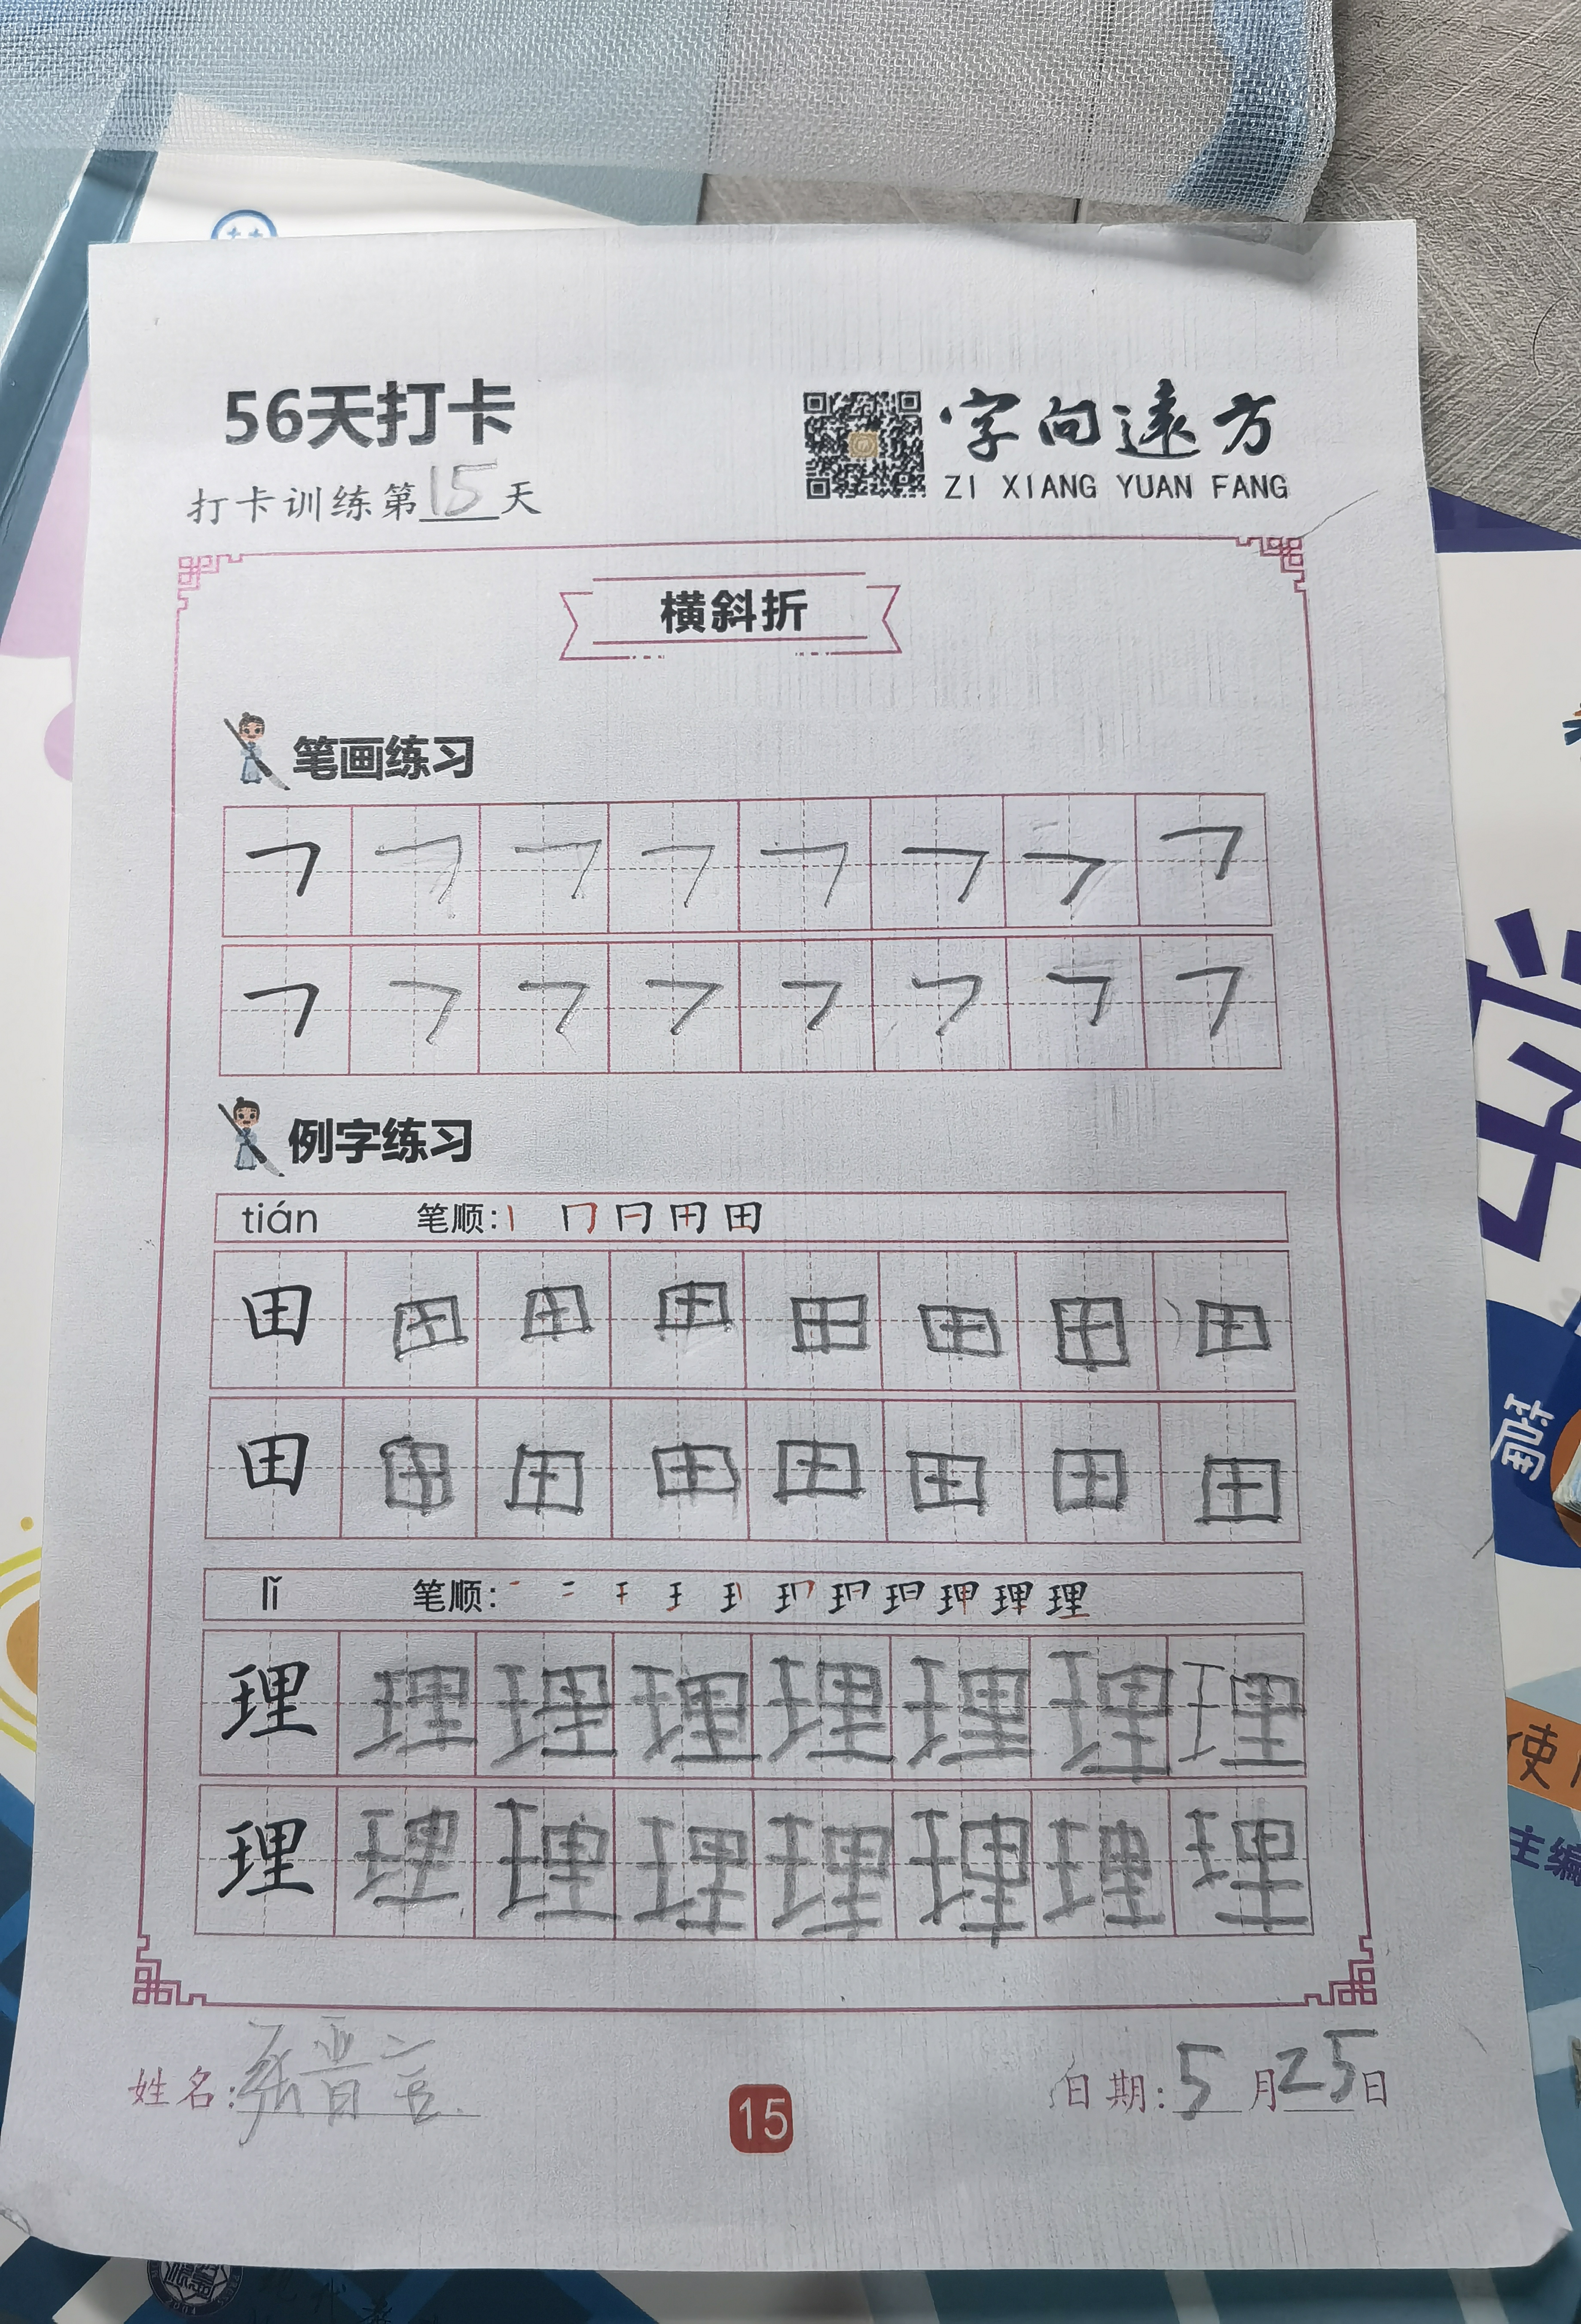 56天打卡
打卡训练第15天
字向遠方
ZI XIANG YUAN FANG
横斜折
笔画练习
㇕ ㇕ ㇕ ㇕ ㇕ ㇕ ㇕ ㇕
㇕ ㇕ ㇕ ㇕ ㇕ ㇕ ㇕ ㇕
例字练习
tián 笔顺: 丨 冂 日 田 田
田 田 田 田 田 田 田 田
田 田 田 田 田 田 田 田
lǐ 笔顺: 理
理 理 理 理 理 理 理 理
理 理 理 理 理 理 理 理
姓名: 张晋言
15
日期: 5月25日
学
篇
使
主编